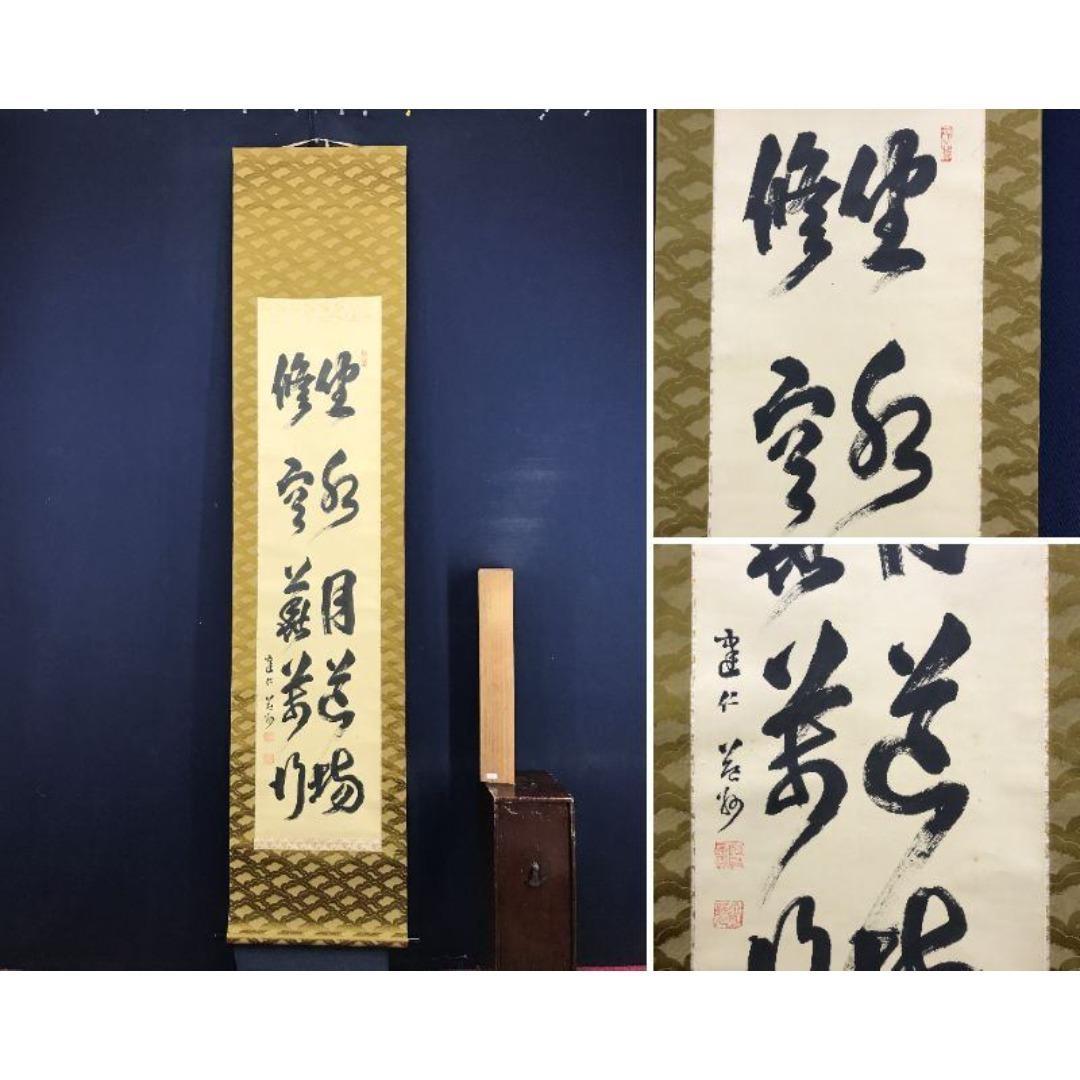 坐水月道場
修空華萬行
建仁 益州